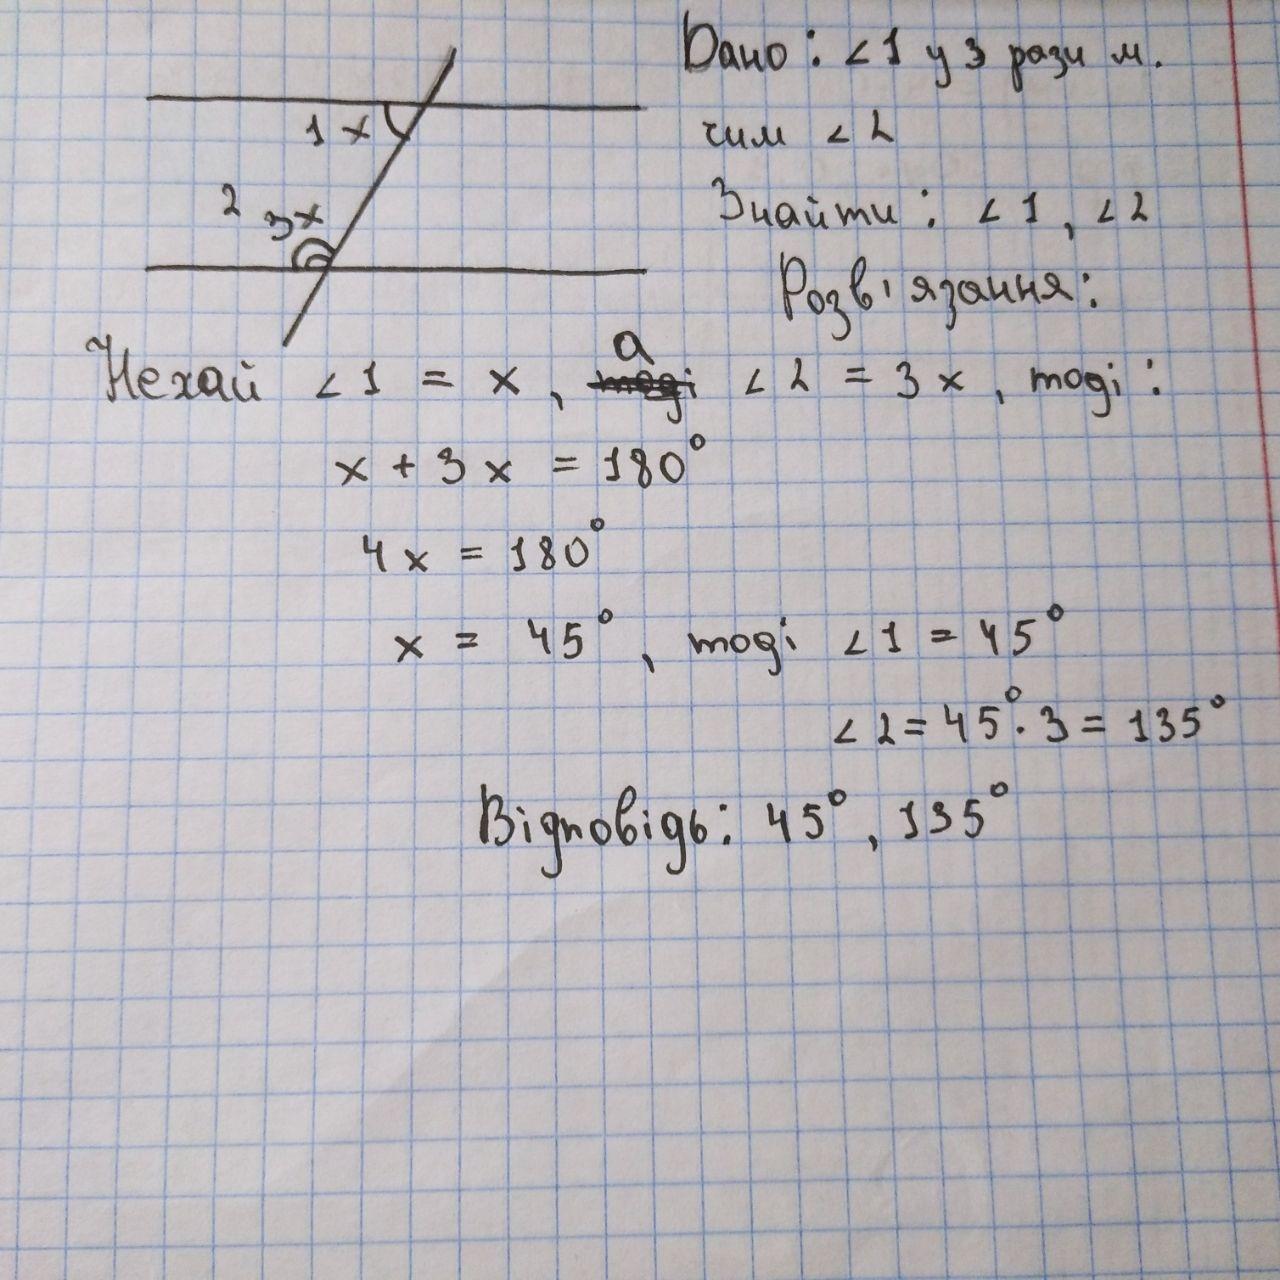 Дано: ∠1 у 3 рази м.
чим ∠2
1 x
2 3x
Знайти: ∠1, ∠2
Розв'язання:
Нехай ∠1 = x, а ∠2 = 3x, тоді:
x + 3x = 180°
4x = 180°
x = 45°, тоді ∠1 = 45°
∠2 = 45°·3 = 135°
Відповідь: 45°, 135°